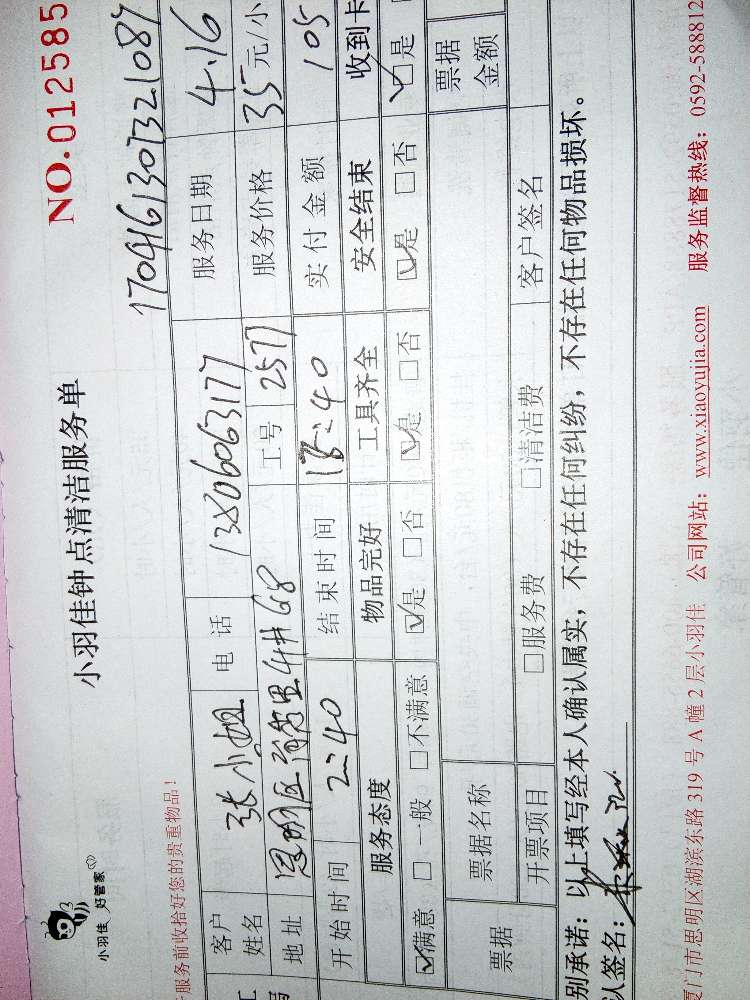 小羽佳 好管家
小羽佳钟点清洁服务单
NO.012585
服务前收拾好您的贵重物品！
170416130132108
客户姓名 张小姐 电话 13806063177 服务日期 4.16
地址 思明区 里 4# 工号 2577 服务价格 35元/小
开始时间 2:40 结束时间 :40 实付金额 105
服务态度 物品完好 工具齐全 安全结束 收到卡
☑满意 □一般 □不满意 ☑是 □否 ☑是 □否 ☑是 □否 ☑是
票据 票据名称 票据金额
开票项目 □服务费 □清洁费 客户签名
别承诺：以上填写经本人确认属实，不存在任何纠纷，不存在任何物品损坏。
认签名：
厦门市思明区湖滨东路319号A幢2层小羽佳 公司网站：www.xiaoyujia.com 服务监督热线：0592-5888812